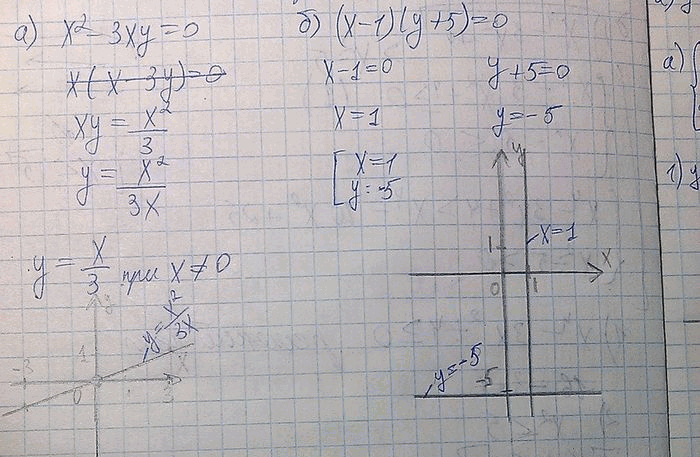 а) x² - 3xy = 0
x(x - 3y) = 0
xy = x²/3
y = x²/3x
y = x/3 при x ≠ 0
y
y = x²/3x
1
-3
0
3
x
б) (x-1)(y+5)=0
x-1=0 y+5=0
x=1 y=-5
[ x=1
y=-5
y
x=1
1
x
0 1
y=-5
-5
а) {
1) y